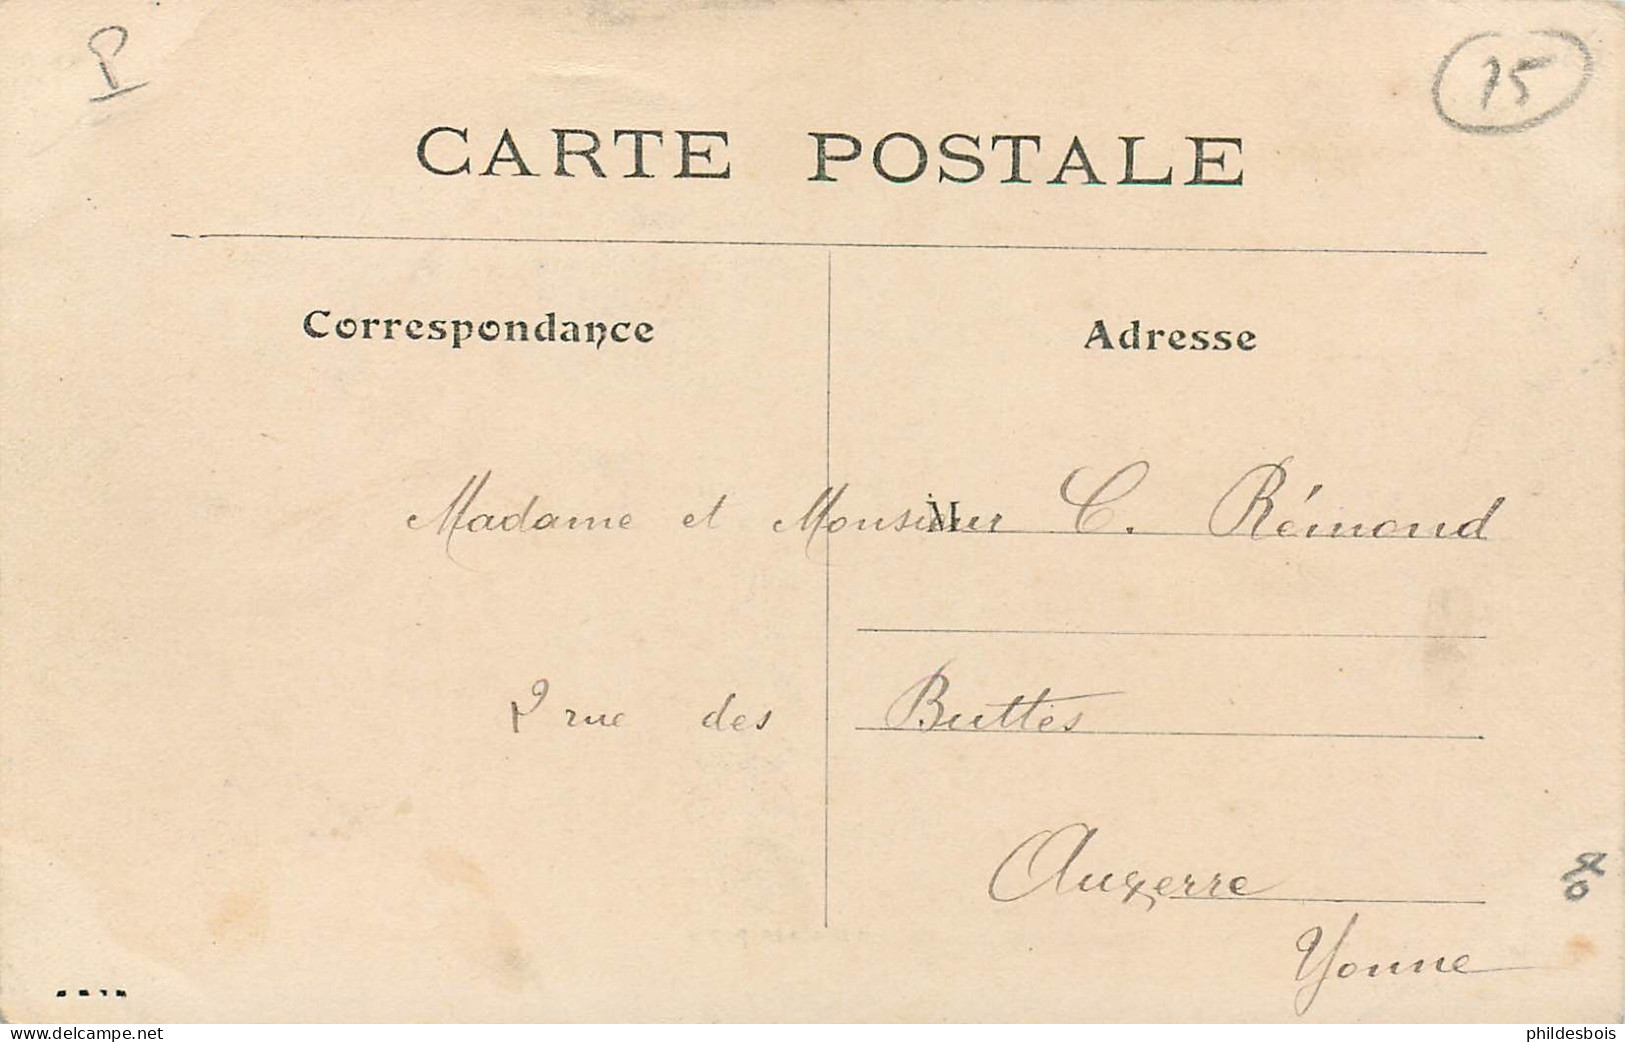 P
75
CARTE POSTALE
Correspondance
Adresse
Madame et Monsieur C. Rémond
M
rue des Buttes
Auxerre
Yonne
delcampe.net
phildesbois